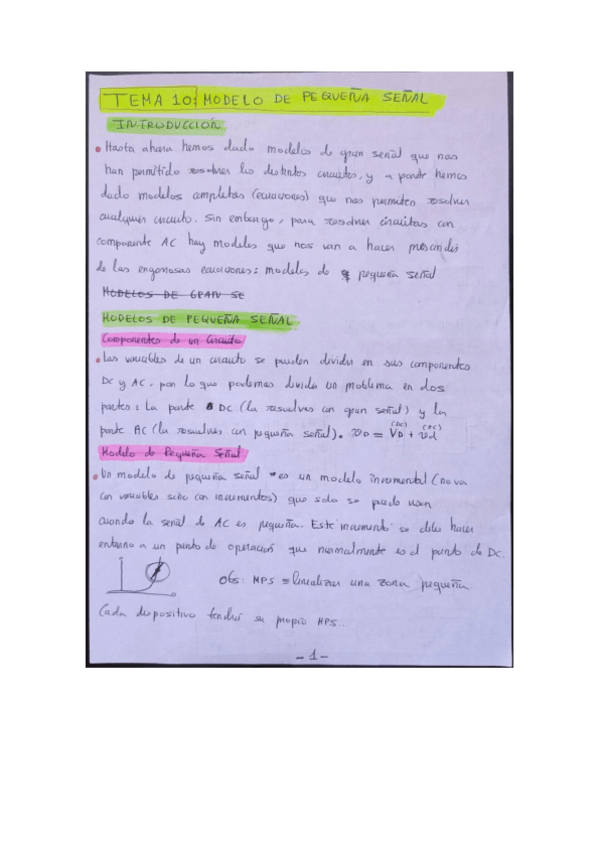 TEMA 10: MODELO DE PEQUEÑA SEÑAL
INTRODUCCIÓN
• Hasta ahora hemos dado modelos de gran señal que nos
han permitido resolver los distintos circuitos, y a parte hemos
dado modelos completos (ecuaciones) que nos permiten resolver
cualquier circuito. Sin embargo, para resolver circuitos con
componente AC hay modelos que nos van a hacer prescindir
de las engorrosas ecuaciones: modelos de pequeña señal
MODELOS DE GRAN SE
MODELOS DE PEQUEÑA SEÑAL
Componentes de un Circuito
• Las variables de un circuito se pueden dividir en sus componentes
DC y AC, por lo que podemos dividir un problema en dos
partes: La parte DC (la resuelves con gran señal) y la
parte AC (la resuelves con pequeña señal). vD = VD + vd
(DC)
Modelo de Pequeña Señal
• Un modelo de pequeña señal es un modelo incremental (no va
con variables sino con incrementos) que solo se puede usar
cuando la señal de AC es pequeña. Este incremento se debe hacer
entorno a un punto de operación que normalmente es el punto de DC.
Obs: MPS ≡ linealizar una zona pequeña
Cada dispositivo tendrá su propio MPS..
- 1 -